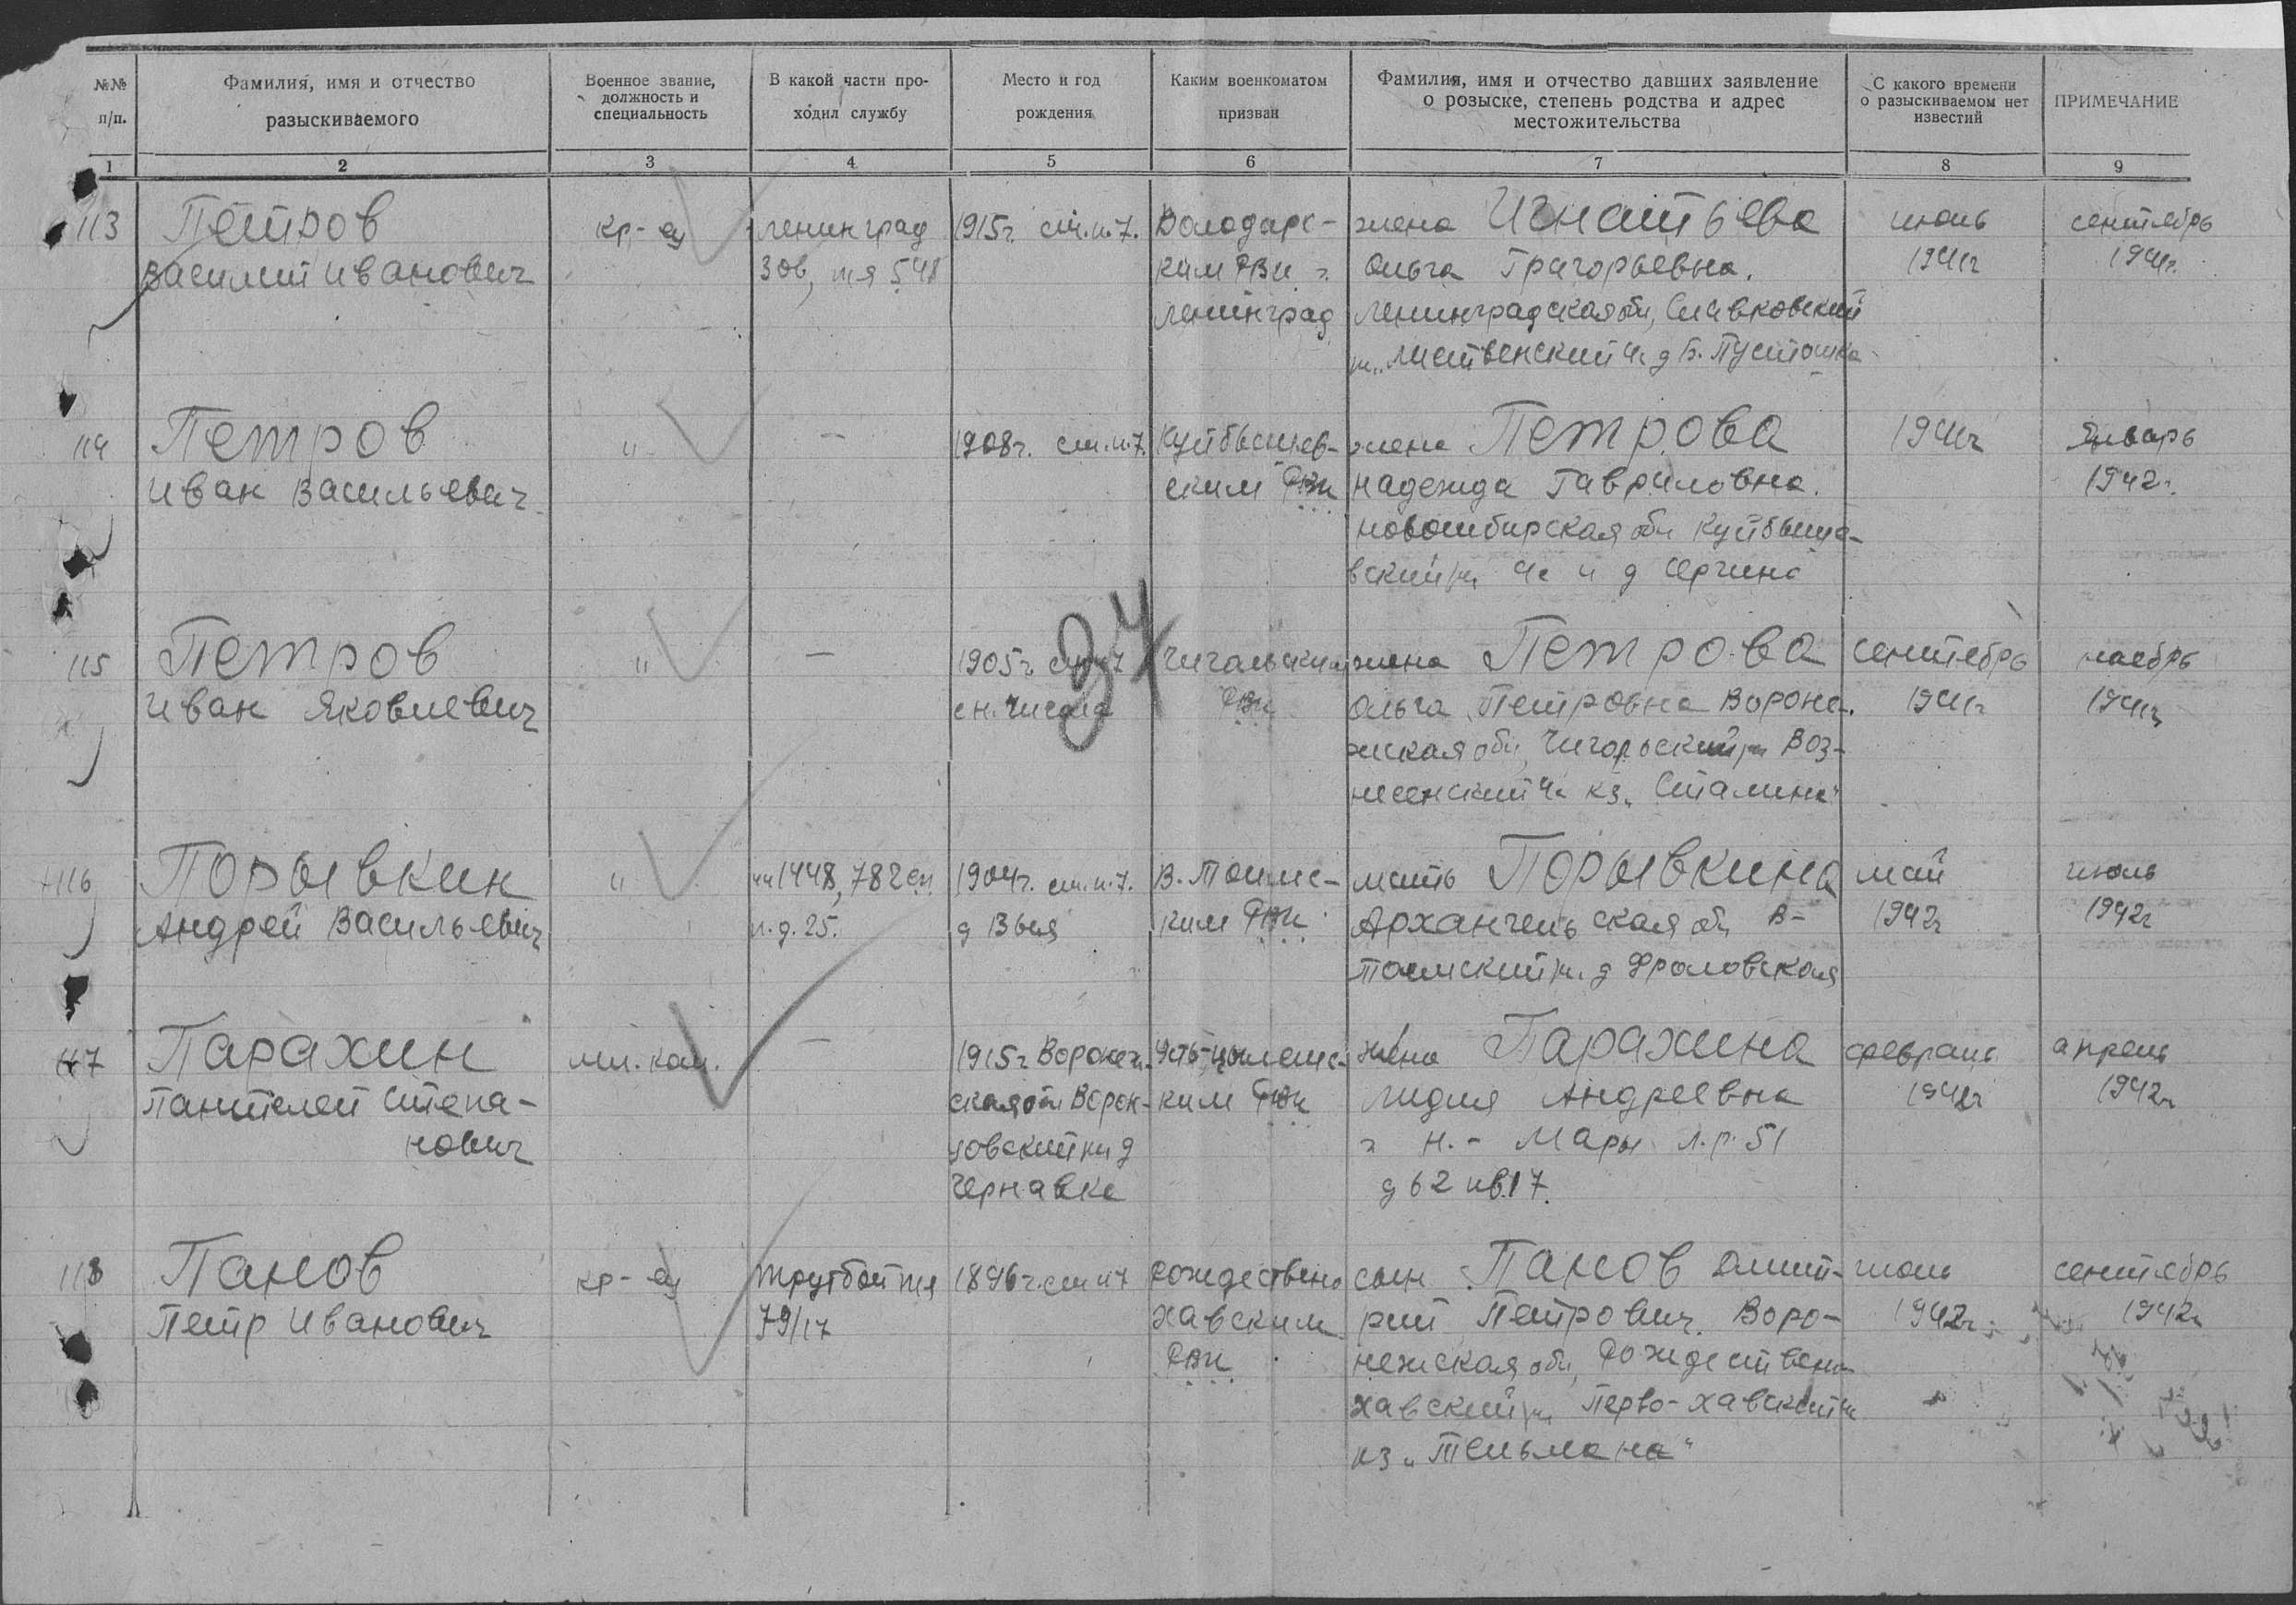 №№ п/п.
Фамилия, имя и отчество разыскиваемого
Военное звание, должность и специальность
В какой части проходил службу
Место и год рождения
Каким военкоматом призван
Фамилия, имя и отчество давших заявление о розыске, степень родства и адрес местожительства
С какого времени о разыскиваемом нет известий
ПРИМЕЧАНИЕ
1 2 3 4 5 6 7 8 9
113
Петров
Василий Иванович
кр-ец
Ленинград
30в, п/я 548
1915г. см.п.7.
Володарс-
ким РВК г.
Ленинград
жена Игнатьева
Ольга Григорьевна.
Ленинградская обл, Славковский
Лиственский д Б. Пустошка
июль
1941г
сентябрь
1941г.
114
Петров
Иван Васильевич
"
—
1908г. см.п.7.
Куйбышев-
ским РВК
жена Петрова
Надежда Гавриловна.
Новосибирская обл Куйбыше-
вский д Сергино
1941г
Январь
1942г.
115
Петров
Иван Яковлевич
"
—
1905г см п7
Чигольским
РВК
жена Петрова
Ольга Петровна Вороне-
жская обл, Чигольский Воз-
несенский кз „Сталина"
сентябрь
1941г
ноябрь
1941г
116
Порывкин
Андрей Васильевич
"
1448, 782
п.д.25.
1904г. см.п.7.
д Выя
В. Тоймс-
ким РВК
мать Порывкина
Архангельская об, В-
Тоемский д Фроловская
май
1942г
июль
1942г
117
Парахин
Пантелей Степа-
нович
мл. ком.
—
1915г Воронеж-
ская обл Ворон-
цовский д
Чернавка
Усть-Цылемс-
ким РВК
жена Парахина
Лидия Андреевна
г Н.- Мары л.р. 51
д 62 кв.17.
февраль
1942г
апрель
1942г
118
Панов
Петр Иванович
кр-ец
п/я
79/17
1896г. см п7
Рождествено
хавским
РВК
сын Панов Дмит-
рий Петрович. Воро-
нежская обл, Рождествено
хавский Перво-хавский
кз „Тельмана"
июль
1942г.
сентябрь
1942г